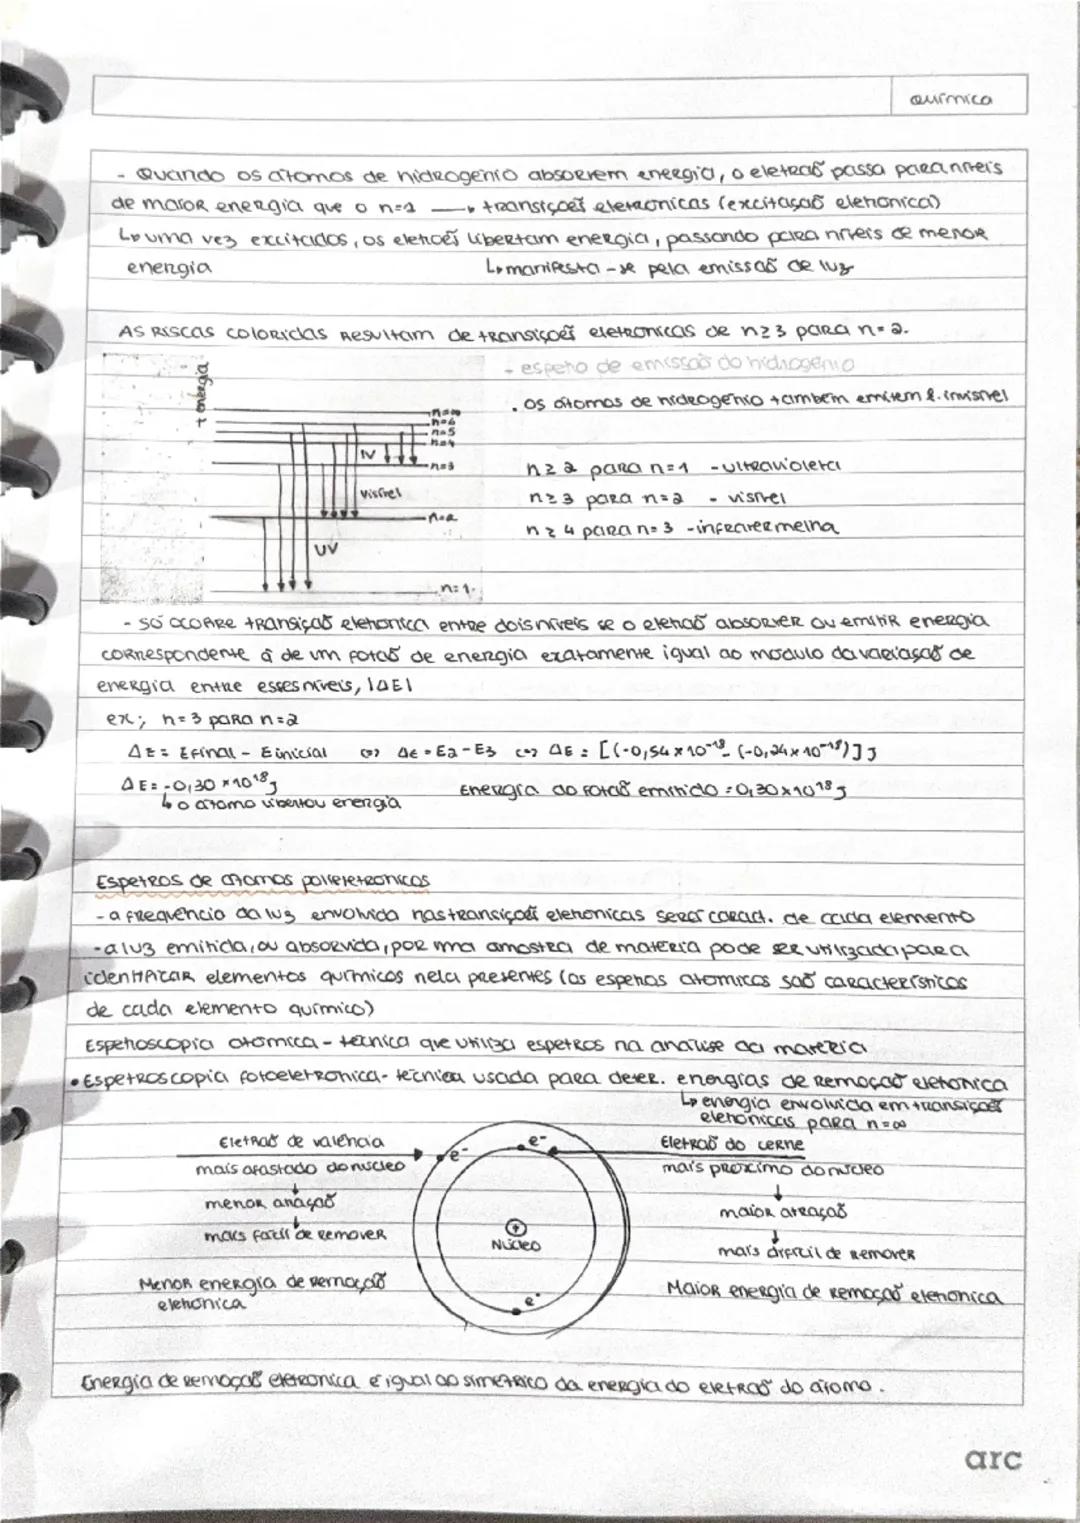 química
- Quando os átomos de hidrogénio absorvem energia, o eletrão passa para níveis
de maior energia que o n=1 → transições eletrónicas (excitação eletrónica)
↳ uma vez excitados, os eletrões libertam energia, passando para níveis de menor
energia ↳ manifesta-se pela emissão de luz
As riscas coloridas resultam de transições eletrónicas de n≥3 para n=2.
- espetro de emissão do hidrogénio
. os átomos de hidrogénio também emitem l. invisível
+ energia
n=∞
n=6
n=5
n=4
IV
n=3
Visível
n=2
UV
n=1
n≥2 para n=1 - ultravioleta
n≥3 para n=2 - visível
n≥4 para n=3 - infravermelha
- só ocorre transição eletrónica entre dois níveis se o eletrão absorver ou emitir energia
correspondente à de um fotão de energia exatamente igual ao módulo da variação de
energia entre esses níveis, |ΔE|
ex; n=3 para n=2
ΔE = Efinal - Einicial <=> ΔE = E2-E3 <=> ΔE = [(-0,54x10⁻¹⁸ - (-0,24x10⁻¹⁸)] J
ΔE = -0,30 x10¹⁸ J Energia do fotão emitido = 0,30x10¹⁸ J
↳ o átomo libertou energia
Espetros de átomos polieletrónicos
- a frequência da luz envolvida nas transições eletrónicas será caract. de cada elemento
- a luz emitida, ou absorvida, por uma amostra de matéria pode ser utilizada para
identificar elementos químicos nela presentes (os espetros atómicos são característicos
de cada elemento químico)
Espetroscopia atómica - técnica que utiliza espetros na análise da matéria
• Espetroscopia fotoeletrónica - técnica usada para deter. energias de remoção eletrónica
↳ energia envolvida em transições
eletrónicas para n=∞
Eletrão de valência
mais afastado do núcleo
↓
menor atração
↓
mais fácil de remover
Menor energia de remoção
eletrónica
e-
e-
+
Núcleo
e-
Eletrão do cerne
mais próximo do núcleo
↓
maior atração
↓
mais difícil de remover
Maior energia de remoção eletrónica
Energia de remoção eletrónica é igual ao simétrico da energia do eletrão do átomo.
arc